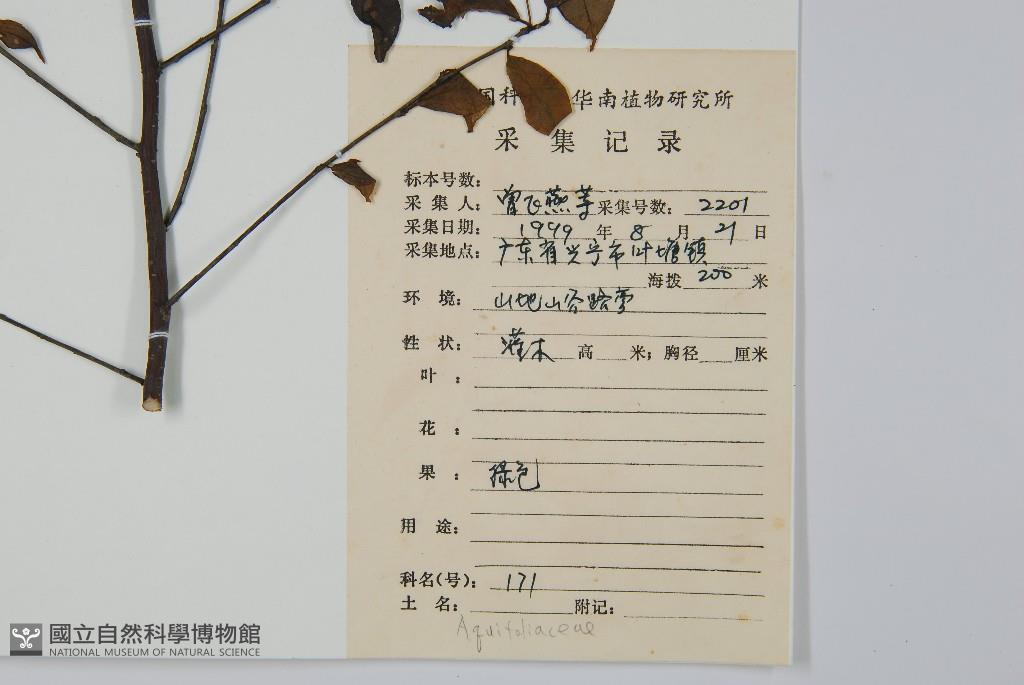 国科 华南植物研究所
采集记录
标本号数：
采集人：曾飞燕等 采集号数：2201
采集日期：1999年8月21日
采集地点：广东省兴宁市叶塘镇
海拨 200 米
环境：山地山谷路旁
性状：灌木 高 米；胸径 厘米
叶：
花：
果：绿色
用途：
科名(号)：171
土名： 附记：
Aquifoliaceae
國立自然科學博物館
NATIONAL MUSEUM OF NATURAL SCIENCE